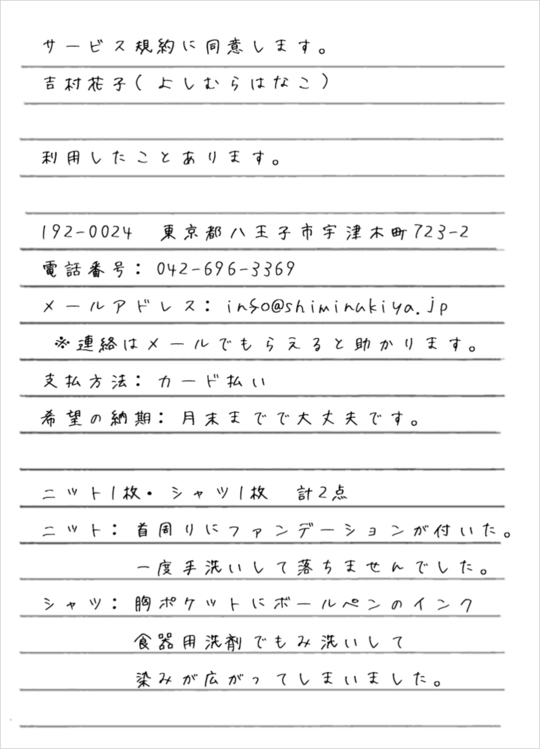 サービス規約に同意します。
吉村花子(よしむらはなこ)
利用したことあります。
192-0024 東京都八王子市宇津木町723-2
電話番号: 042-696-3369
メールアドレス: info@shiminukiya.jp
※連絡はメールでもらえると助かります。
支払方法: カード払い
希望の納期: 月末までで大丈夫です。
ニット1枚・シャツ1枚 計2点
ニット: 首周りにファンデーションが付いた。
一度手洗いして落ちませんでした。
シャツ: 胸ポケットにボールペンのインク
食器用洗剤でもみ洗いして
染みが広がってしまいました。